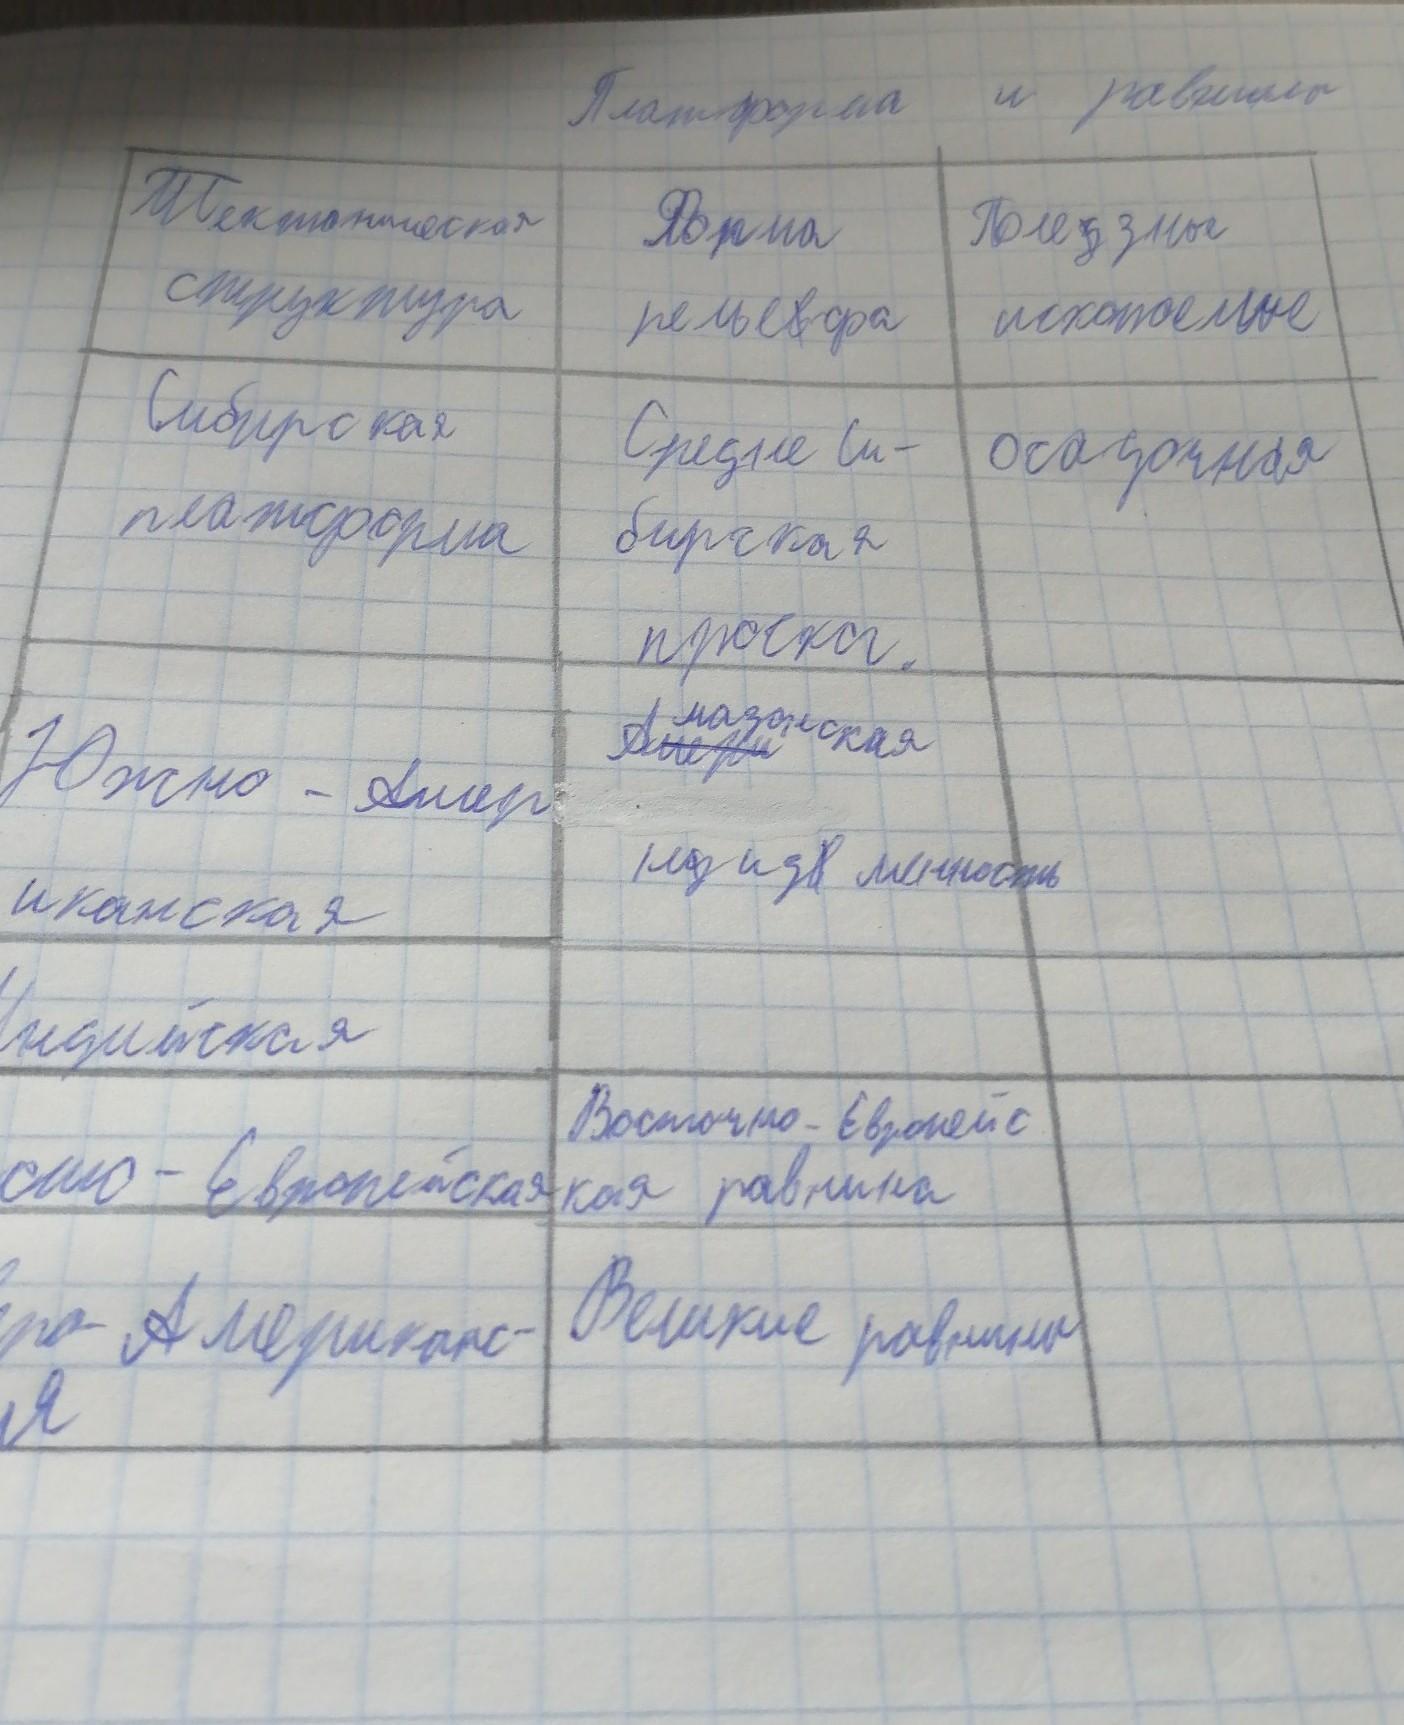 Платформа и равнины
Тектоническая
структура
Форма
рельефа
Полезны
ископаемые
Сибирская
платформа
Средне Си-
бирская
плоског.
осадочная
Южно - Амер
иканская
Амазонская
низменность
Индийская
Восточно - Европейс
кая равнина
- Европейская
Американс-
Великие равнины